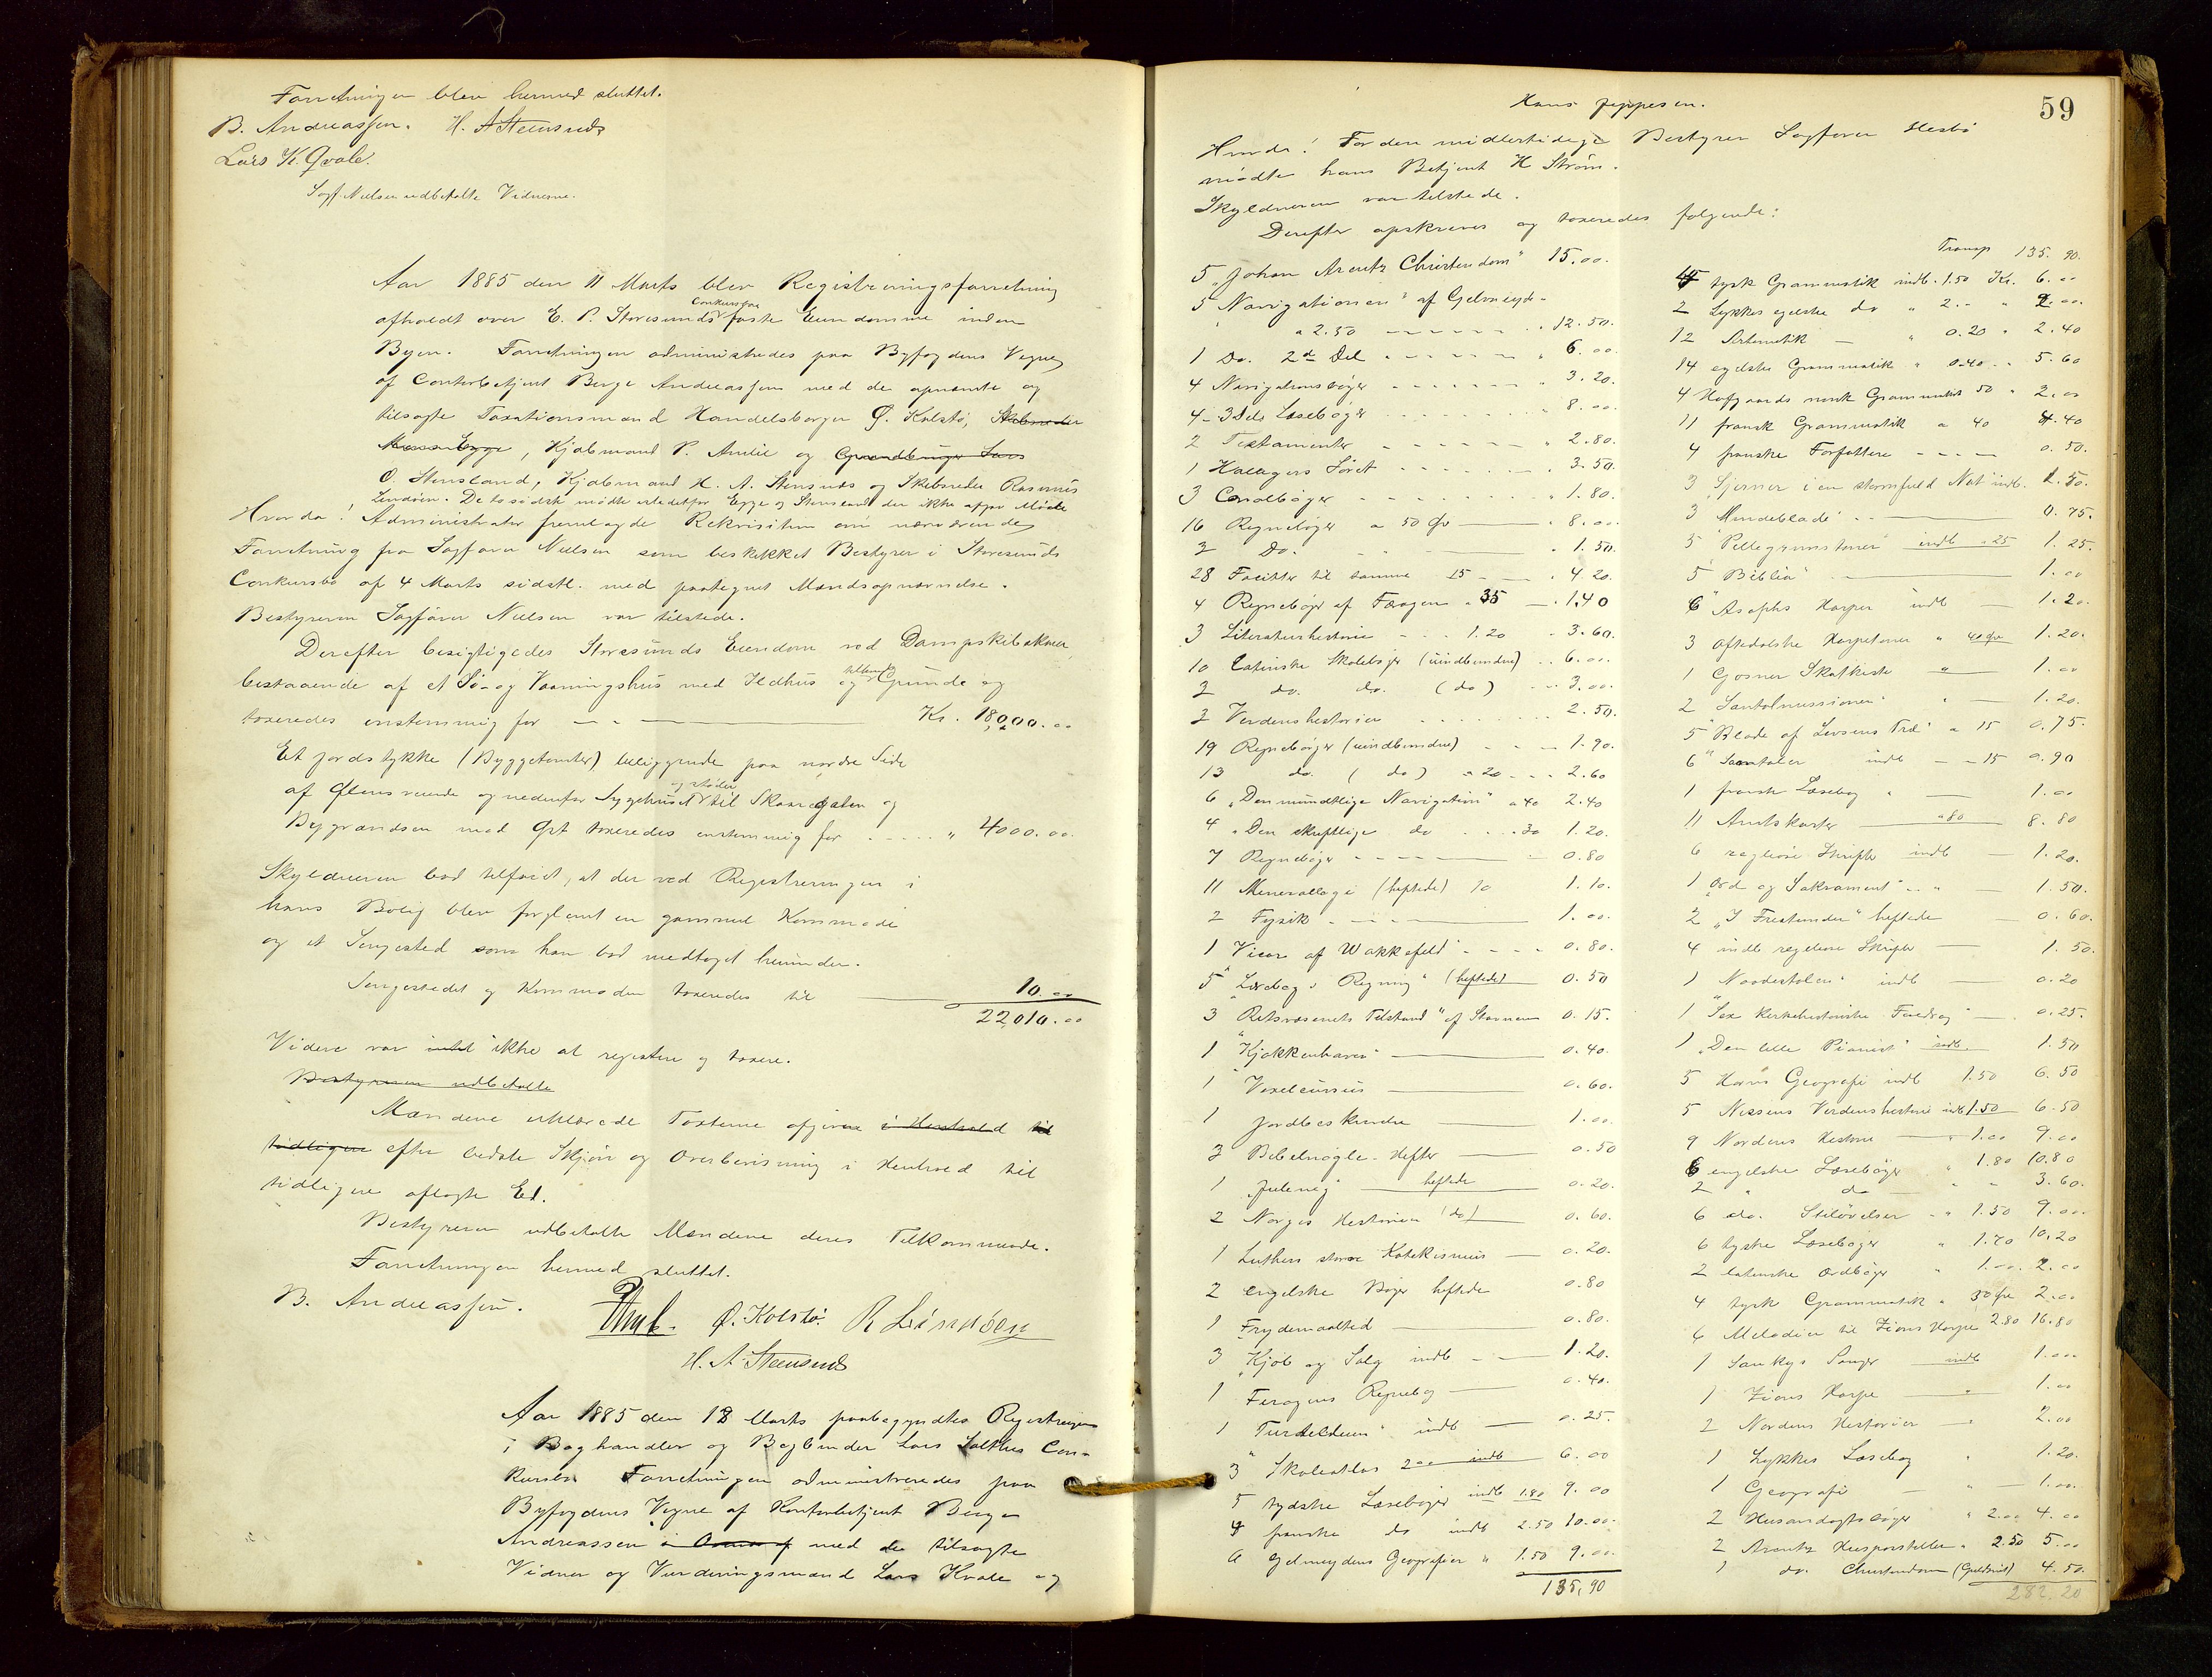 Forretningen blev hermed sluttet.
B. Andreassen. H. A Steensnæs
Lars K. Qvale.
Sagf. Nielsen udbetalte Vidnerne.
Aar 1885 den 11 Marts blev Registreringsforretning
afholdt over E. P. Storesunds Conkursbos faste Eiendomme inden
Byen. Forretningen administredes paa Byfogdens Vegne
af Contorbetjent Berge Andreassen med de opnævnte og
tilsagte Taxationsmænd Handelsborger Ø. Kolstø, Skibsreder
, Kjøbmand P. Amlie og Lars
O. Stensland, Kjøbmand H. A. Stensnæs og Skibsreder Rasmus
Lindøen. De to sidste mødte istedetfor Egge og Stensland der ikke
Hvorda! Administrator fremlagde Rekvisition om nærværende
Forretning fra Sagfører Nielsen som beskikket Bestyrer i Storesunds
Conkursbo af 4 Marts sidstl. med paategnet Mændsopnævnelse.
Bestyreren Sagfører Nielsen var tilstede.
Derefter besigtigedes Storesunds Eiendom ved Dampskibskaien
bestaaende af et Sø- og Vaaningshus med Ildhus og tilhørende Grunde og
taxeredes enstemmig for Kr. 18,000.00
Et Jordstykke (Byggetomter) beliggende paa nordre Side
af veiende og nedenfor Sygehuset og støder til Skaaregaten og
Bygrændsen mod Øst taxeredes enstemmig for " 4000.00
Skyldneren bad tilført, at der ved Registreringen i
hans Bolig blev forglemt en gammel Kommode
og et Sengested som han bad medtaget herunder.
Sengestedet og Kommoden taxeredes til 10.00
22,010.00
Videre var intet ikke at registrere og taxere.
Bestyreren udbetalte
Mændene erklærede Taxterne afgivne i Henhold til
tidligere efter bedste Skjøn og Overbevisning i Henhold til
tidligere aflagte Ed.
Bestyreren udbetalte Mændene deres Tilkommende.
Forretningen hermed sluttet.
B. Andreassen. Ø. Kolstø. R Lindøen
H. A Steensnæs
Aar 1885 den 18 Marts paabegyndtes Registreringen
i Boghandler og Bogbinder Lars Salthus Con-
kursbo. Forretningen administreredes paa
Byfogdens Vegne af Kontorbetjent Berge
Andreassen med de tilsagte
Vidner og Vurderingsmænd Lars Kvale og
59
Hans Jeppesen.
Hvorda! For den midlertidige Bestyrer Sagfører Hesbø
mødte hans Betjent H Strøm.
Skyldneren var tilstede.
Derefter opskreves og taxeredes følgende:
5 "Johan Arentz Christendom" 15.00.
5 "Navigationen" af Gelmuyde-
a 2.50 " 12.50.
1 Do. 2den Del " 6.00.
4 Navigationsbøger " 3.20.
4 - 3 Dels Læsebøger 8.00.
2 Testamenter " 2.80.
1 Hallagers Søret " 3.50.
3 bøger " 1.80.
16 Regnebøger a 50 Øre " 8.00.
3 Do. " 1.50.
28 Faciter til samme 15 " 4.20.
4 Regnebøger af Færgen a 35 " 1.40
3 Literaturhistorie 1.20 " 3.60.
10 Latinske Skolebøger (uindbundne) 6.00.
3 do. do. (do) 3.00.
2 Verdenshistorier 2.50.
19 Regnebøger (uindbundne) 1.90.
13 do. (do) a 20 2.60
6 "Den mundtlige Navigation" a 40 2.40
4 "Den skriftlige do 30 1.20.
7 Regnebøger 0.80
11 Minerallogi (heftede) 10 1.10.
2 Fysik 1.00.
1 Vicar af Wakkefeld 0.80.
5 "Lærebog i Regning" (heftede) 0.50
3 "Retsvæsenets Tilstand" af Stavnem 0.15.
1 "Kjøkkenhaven" 0.40.
1 Vexelcursus 0.60.
1 Jordbeskrivelse 1.00.
3 Bibelnøgle-Hefter 0.50
1 "Juleneg" heftede 0.20.
2 Norges Historien (do) 0.60.
1 Luthers store Katekismus 0.20.
2 engelske Bøger heftede 0.80
1 Frydemaaltid 0.80.
3 "Kjøb og Salg indb 1.20.
1 Færøgens Regnebog 0.40.
1 Turtelduen" indb 0.25.
3 "Skoleatlas 2.00 indb 6.00
5 tydske Læsebøger indb 1.80 9.00
4 franske do indb 2.50 10.00.
6 Gelmuydens Geografier " 1.50 9.00.
135,90
Transp 135.90.
4 tysk Grammatik indb. 1.50 Kr. 6.00
2 Lykkes egelske do " 2.- " 2.00.
12 Aritmetik " 0.20 " 2.40
14 egelske Grammatik " 0.40 " 5.60
4 Hofgaards norsk Grammatik 50 " 2.00
11 fransk Grammatik a 40 4.40
4 franske Forfattere 0.50.
3 "Stjerner i en stormfuld Nat" indb. 1.50.
3 "Mindeblade" 0.75.
5 "Pillegrimstoner" indb a 25 1.25.
5 "Biblia" 1.00
6 "Asaphs Harper indb 1.20.
3 Oftedalske Harpetoner " 40 Øre 1.20.
1 Gosner Skatkiste " 1.00
2 "Santalmissionen" 1.20.
5 "Blade af Livsens Træ" a 15 0.75.
6 "Samtaler indb a 15 0.90
1 fransk Læsebog " 1.00
11 Amtskarter a 80 8.80
6 regliøse Skrifter indb 1.20.
1 "Ord og Sakrament" " 1.50.
2 "I Fristunder" heftede 0.60.
4 indb regliøse Skrifter 1.50.
1 "Naadestolen" indb 0.20
1 "Sex kirkehistoriske Foredrag" 0.25.
1 "Den lille Pianist" indb. 1.50
5 Horns Geografi indb 1.50 6.50
5 Nissens Verdenshistorie indb 1.50 6.50
9 Nordens Historie " 1.00 9.00
6 engelske Læsebøger " 1.80 10.80
2 " do " " 3.60.
6 do. Stiløvelser " 1.50 9.00
6 tyske Læsebøger " 1.70 10.20
2 latinske Ordbøger " 1.00. 2.00.
4 tysk Grammatik a 50 Øre 2.00
6 Melodier til Zions Harpe 2.80 16.80
1 Sankys Sange indb 1.00
1 Zions Harpe " 1.00
2 Nordens Historier " 2.00
1 Lykkes Læsebog " 1.20.
1 Geografi " 1.00.
2 Husandagtsbøger " 2.00 4.00
2 Arentz Huspostiller " 2.50 5.00
1 do. Christendom (Guldsnit) 4.50.
282.20